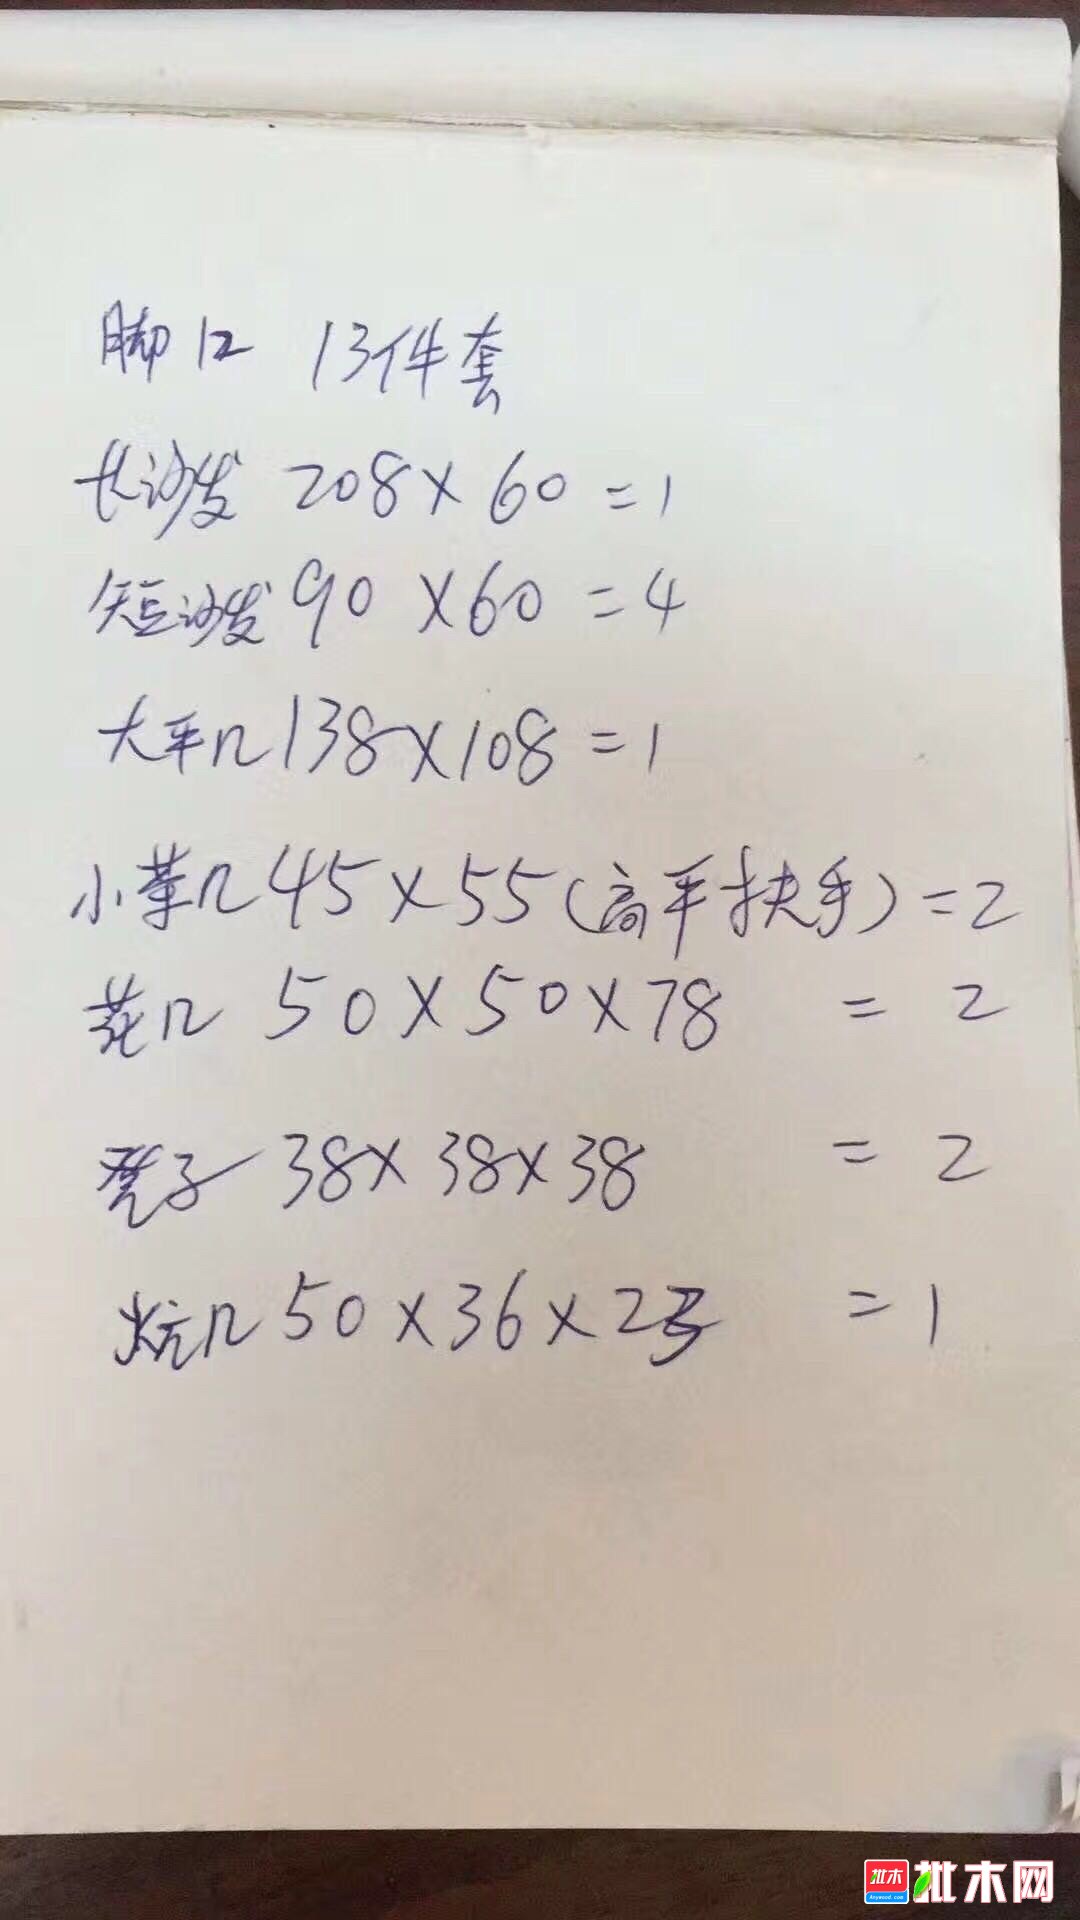 脚12 13件套
长沙发 208×60=1
短沙发 90×60=4
大平几 138×108=1
小茶几 45×55(高平扶手)=2
花几 50×50×78 =2
凳子 38×38×38 =2
炕几 50×36×23 =1
批木
Anywood.com
批木网